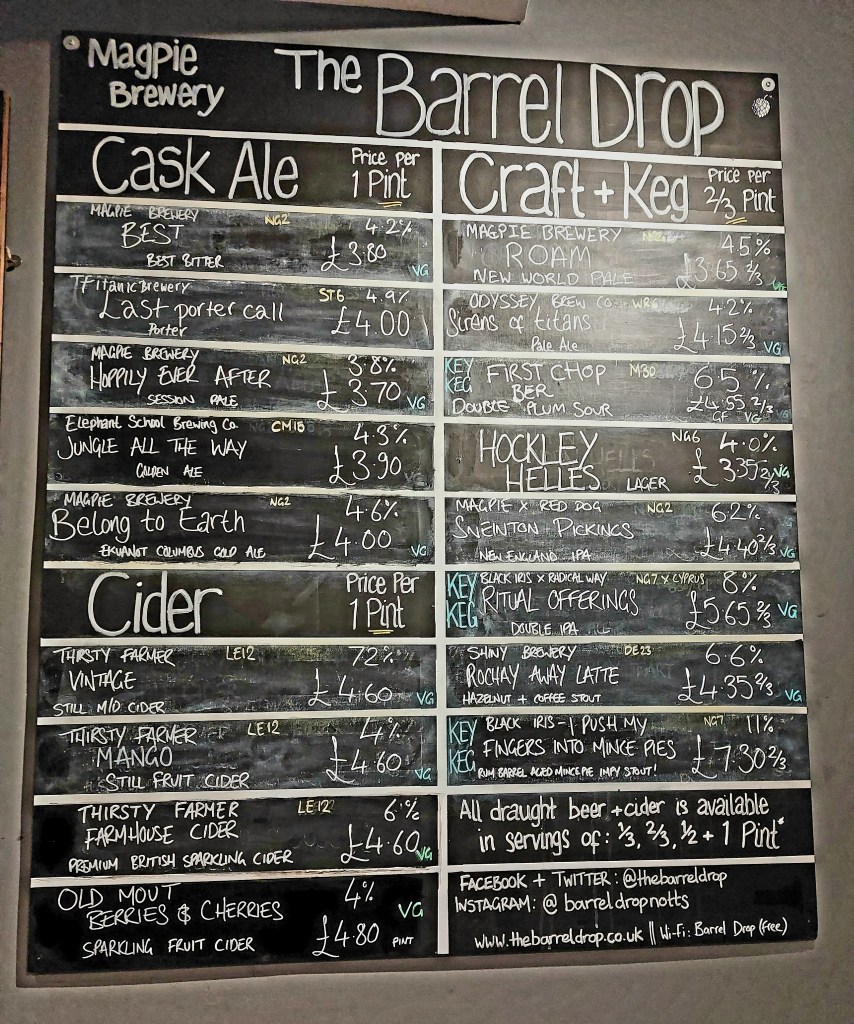 Magpie Brewery
The Barrel Drop
Cask Ale
Price Per 1 Pint
MAGPIE BREWERY NG2 4.2%
BEST £3.80
BEST BITTER VG
Titanic Brewery ST6 4.9%
Last porter call £4.00
Porter
MAGPIE BREWERY NG2 3.8%
HOPPILY EVER AFTER £3.70
SESSION PALE VG
Elephant School Brewing Co. CM15 4.3%
JUNGLE ALL THE WAY £3.90
GOLDEN ALE
MAGPIE BREWERY NG2 4.6%
Belong to Earth £4.00
EKUANOT COLUMBUS GOLD ALE VG
Cider
Price Per 1 Pint
THIRSTY FARMER LE12 7.2%
VINTAGE £4.60
STILL M/D CIDER VG
THIRSTY FARMER LE12 4%
MANGO £4.60
STILL FRUIT CIDER VG
THIRSTY FARMER LE12 6%
FARMHOUSE CIDER £4.60
PREMIUM BRITISH SPARKLING CIDER VG
OLD MOUT 4%
BERRIES & CHERRIES VG
SPARKLING FRUIT CIDER £4.80 PINT
Craft + Keg
Price Per 2/3 Pint
MAGPIE BREWERY 4.5%
ROAM £3.65 2/3
NEW WORLD PALE VG
ODYSSEY BREW CO. WR6 4.2%
Sirens of titans £4.15 2/3
Pale Ale VG
KEY KEG FIRST CHOP M30 6.5%
BER £4.55 2/3
DOUBLE PLUM SOUR GF VG
HOCKLEY NG6 4.0%
HELLES £3.35 2/3 VG
LAGER
MAGPIE X RED DOG NG2 6.2%
SNEINTON PICKINGS £4.40 2/3
NEW ENGLAND IPA VG
KEY KEG BLACK IRIS X RADICAL WAY NG7 X CYPRUS 8%
RITUAL OFFERINGS £5.65 2/3 VG
DOUBLE IPA
SHINY BREWERY DE23 6.6%
ROCHAY AWAY LATTE £4.35 2/3
HAZELNUT + COFFEE STOUT VG
KEY KEG BLACK IRIS - I PUSH MY NG7 11%
FINGERS INTO MINCE PIES £7.30 2/3
RUM BARREL AGED MINCE PIE IMPY STOUT!
All draught beer + cider is available
in servings of: 1/3, 2/3, 1/2 + 1 Pint*
FACEBOOK + TWITTER: @thebarreldrop
INSTAGRAM: @barreldropnotts
www.thebarreldrop.co.uk || Wi-Fi: Barrel Drop (free)